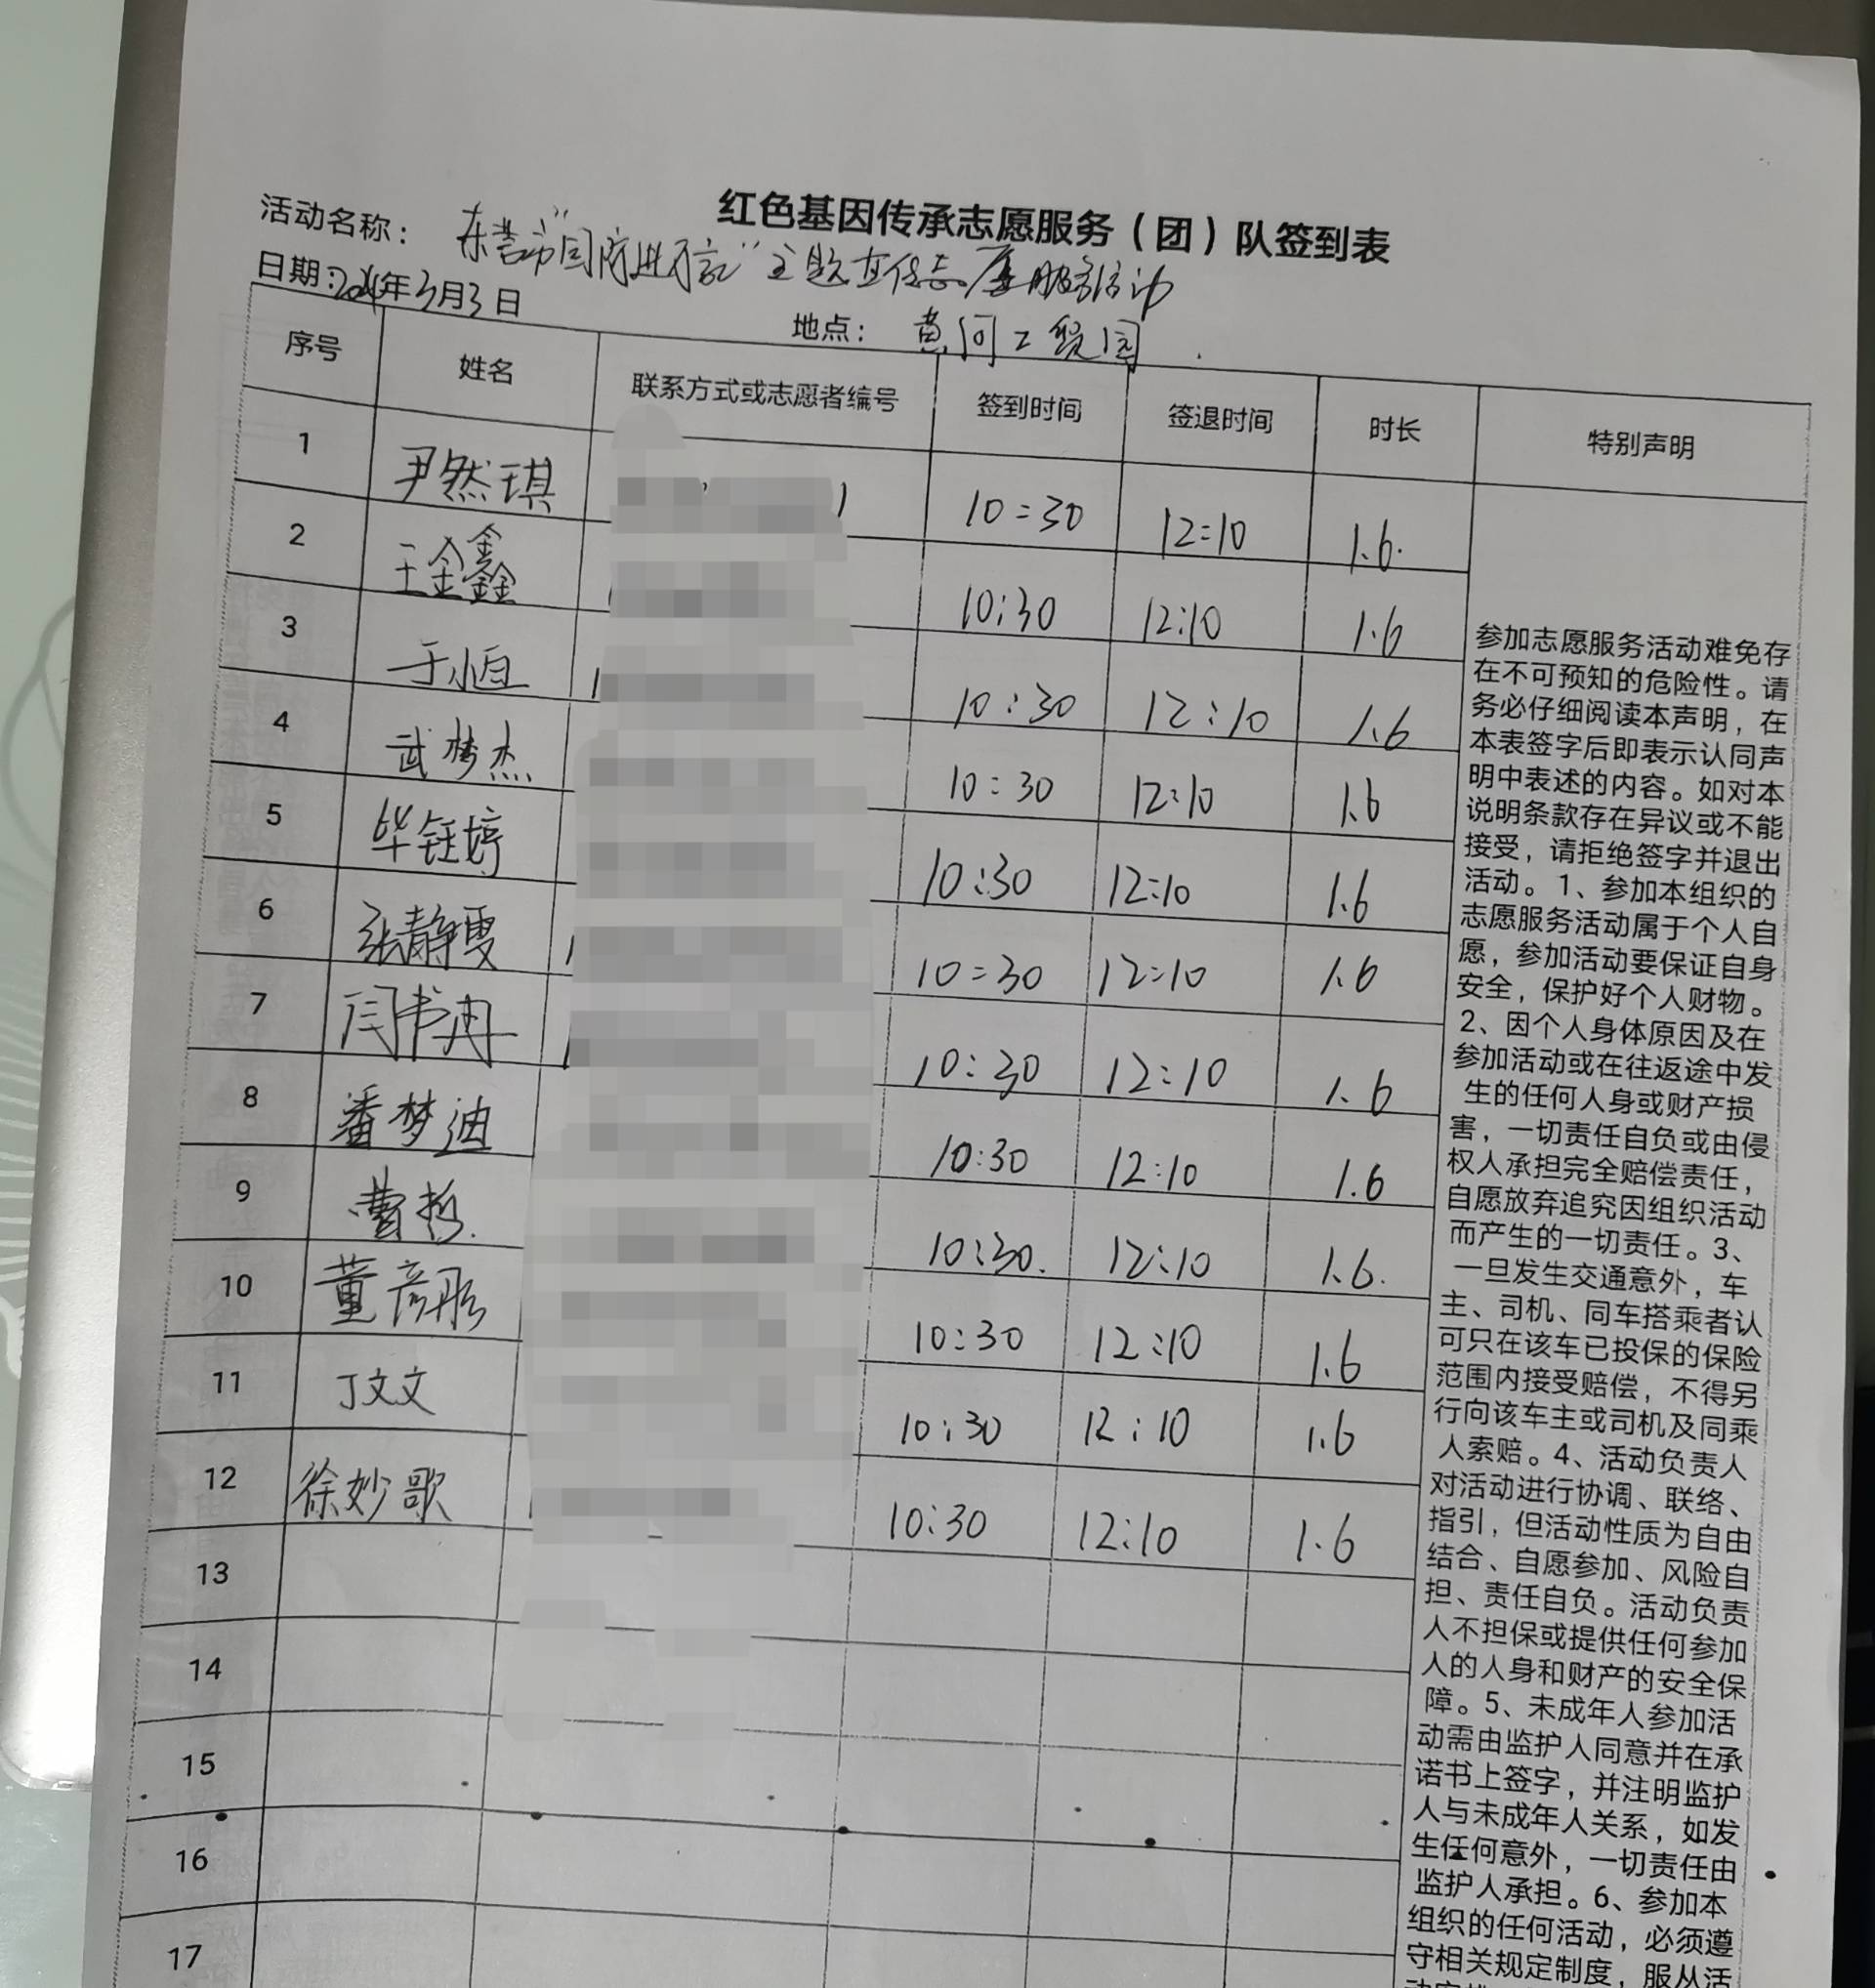 红色基因传承志愿服务（团）队签到表
活动名称：东营市"国防进行言"主题宣传志愿服务活动
日期：年3月3日
地点：黄河工贸园
序号 姓名 联系方式或志愿者编号 签到时间 签退时间 时长 特别声明
1 尹然琪 10:30 12:10 1.6.
2 王金鑫 10:30 12:10 1.6
3 于小恒 10:30 12:10 1.6
4 武梦杰 10:30 12:10 1.6
5 毕钰婷 10:30 12:10 1.6
6 张静雯 10:30 12:10 1.6
7 闫书冉 10:30 12:10 1.6
8 潘梦迪 10:30 12:10 1.6
9 曹哲. 10:30. 12:10 1.6.
10 董彦彤 10:30 12:10 1.6
11 丁文文 10:30 12:10 1.6
12 徐妙歌 10:30 12:10 1.6
13
14
15
16
17
参加志愿服务活动难免存
在不可预知的危险性。请
务必仔细阅读本声明，在
本表签字后即表示认同声
明中表述的内容。如对本
说明条款存在异议或不能
接受，请拒绝签字并退出
活动。1、参加本组织的
志愿服务活动属于个人自
愿，参加活动要保证自身
安全，保护好个人财物。
2、因个人身体原因及在
参加活动或在往返途中发
生的任何人身或财产损
害，一切责任自负或由侵
权人承担完全赔偿责任，
自愿放弃追究因组织活动
而产生的一切责任。3、
一旦发生交通意外，车
主、司机、同车搭乘者认
可只在该车已投保的保险
范围内接受赔偿，不得另
行向该车主或司机及同乘
人索赔。4、活动负责人
对活动进行协调、联络、
指引，但活动性质为自由
结合、自愿参加、风险自
担、责任自负。活动负责
人不担保或提供任何参加
人的人身和财产的安全保
障。5、未成年人参加活
动需由监护人同意并在承
诺书上签字，并注明监护
人与未成年人关系，如发
生任何意外，一切责任由
监护人承担。6、参加本
组织的任何活动，必须遵
守相关规定制度，服从活